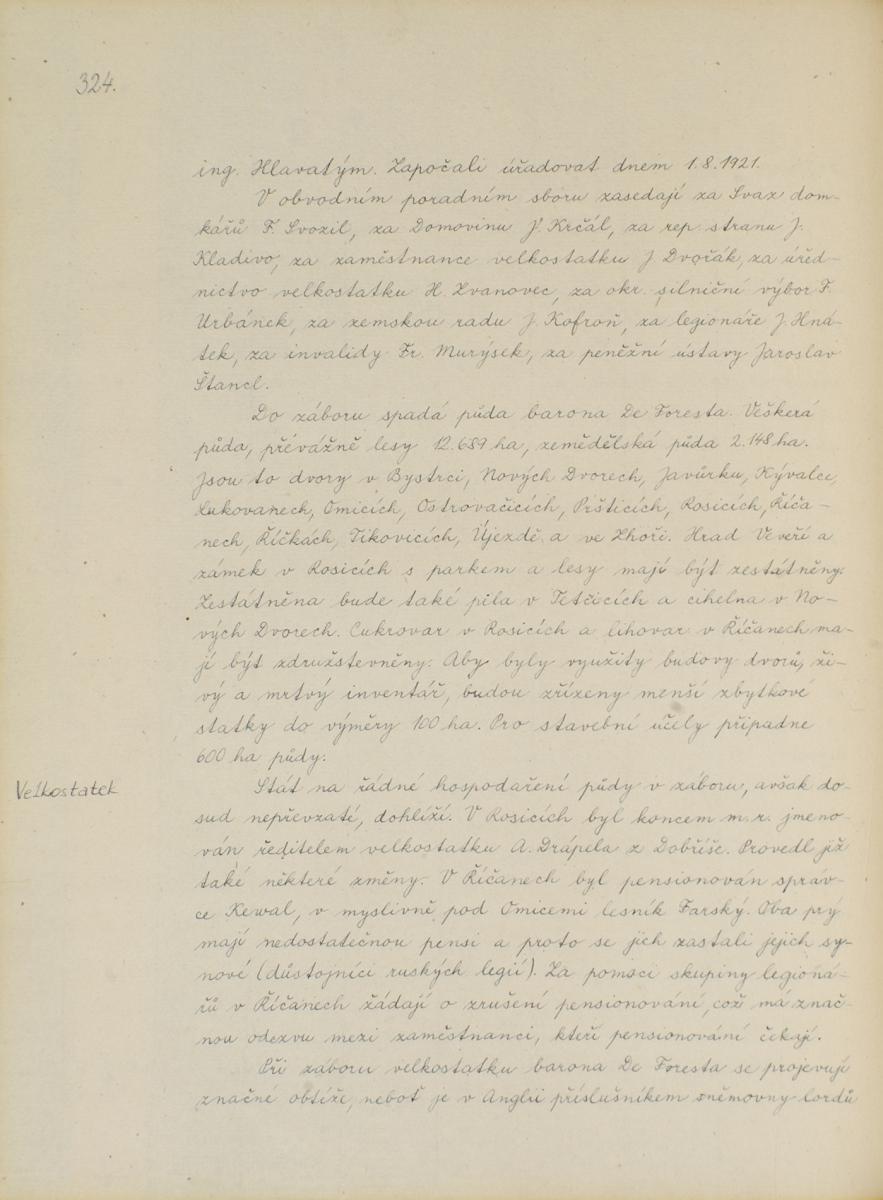 324.
ing. Hlavatým. Započali úřadovat dnem 1.8.1921.
V obvodním poradním sboru zasedají za Svaz dom-
kářů F. Svozil, za Domovinu J. Krčál, za rep. stranu J.
Kladivo, za zaměstnance velkostatku J. Dvořák, za úřed-
nictvo velkostatku H. Zvanovec, za okr. silniční výbor F.
Urbánek, za zemskou radu J. Kofroň, za legionáře J. Hná-
tek, za invalidy Fr. Murýsek, za peněžní ústavy Jaroslav
Štancl.
Do záboru spadá půda barona De Foresta. Veškerá
půda, převážně lesy 12.689 ha, zemědělská půda 2.148 ha.
Jsou to dvory v Bystrci, Nových Dvorech, Javůrku, Kývalce,
Lukovanech, Omicích, Ostrovačicích, Pršticích, Rosicích, Říča-
nech, Říčkách, Tikovicích, Újezdě a ve Zhoři. Hrad Veveří a
zámek v Rosicích s parkem a lesy mají být zestátněny.
Zestátněna bude také pila v Tetčicích a cihelna v No-
vých Dvorech. Cukrovar v Rosicích a lihovar v Říčanech ma-
jí být združstevněny. Aby byly využity budovy dvorů, ži-
vý a mrtvý inventář, budou zřízeny menší zbytkové
statky do výměry 100 ha. Pro stavební účely připadne
600 ha půdy.
Velkostatek
Stát na řádné hospodaření půdy v záboru, avšak do-
sud nepřevzaté, dohlíží. V Rosicích byl koncem m.r. jmeno-
ván ředitelem velkostatku A. Drápela z Dobříše. Provedl již
také některé změny. V Říčanech byl pensionován správ-
ce Kewal, v myslivně pod Omicemi lesník Farský. Oba prý
mají nedostatečnou pensi a proto se jich zastali jejich sy-
nové (důstojníci ruských legií). Za pomoci skupiny legioná-
řů v Říčanech žádají o zrušení pensionování, což má znač-
nou odezvu mezi zaměstnanci, kteří pensionování čekají.
Při záboru velkostatku barona De Foresta se projevují
značné obtíže, neboť je v Anglii příslušníkem sněmovny lordů